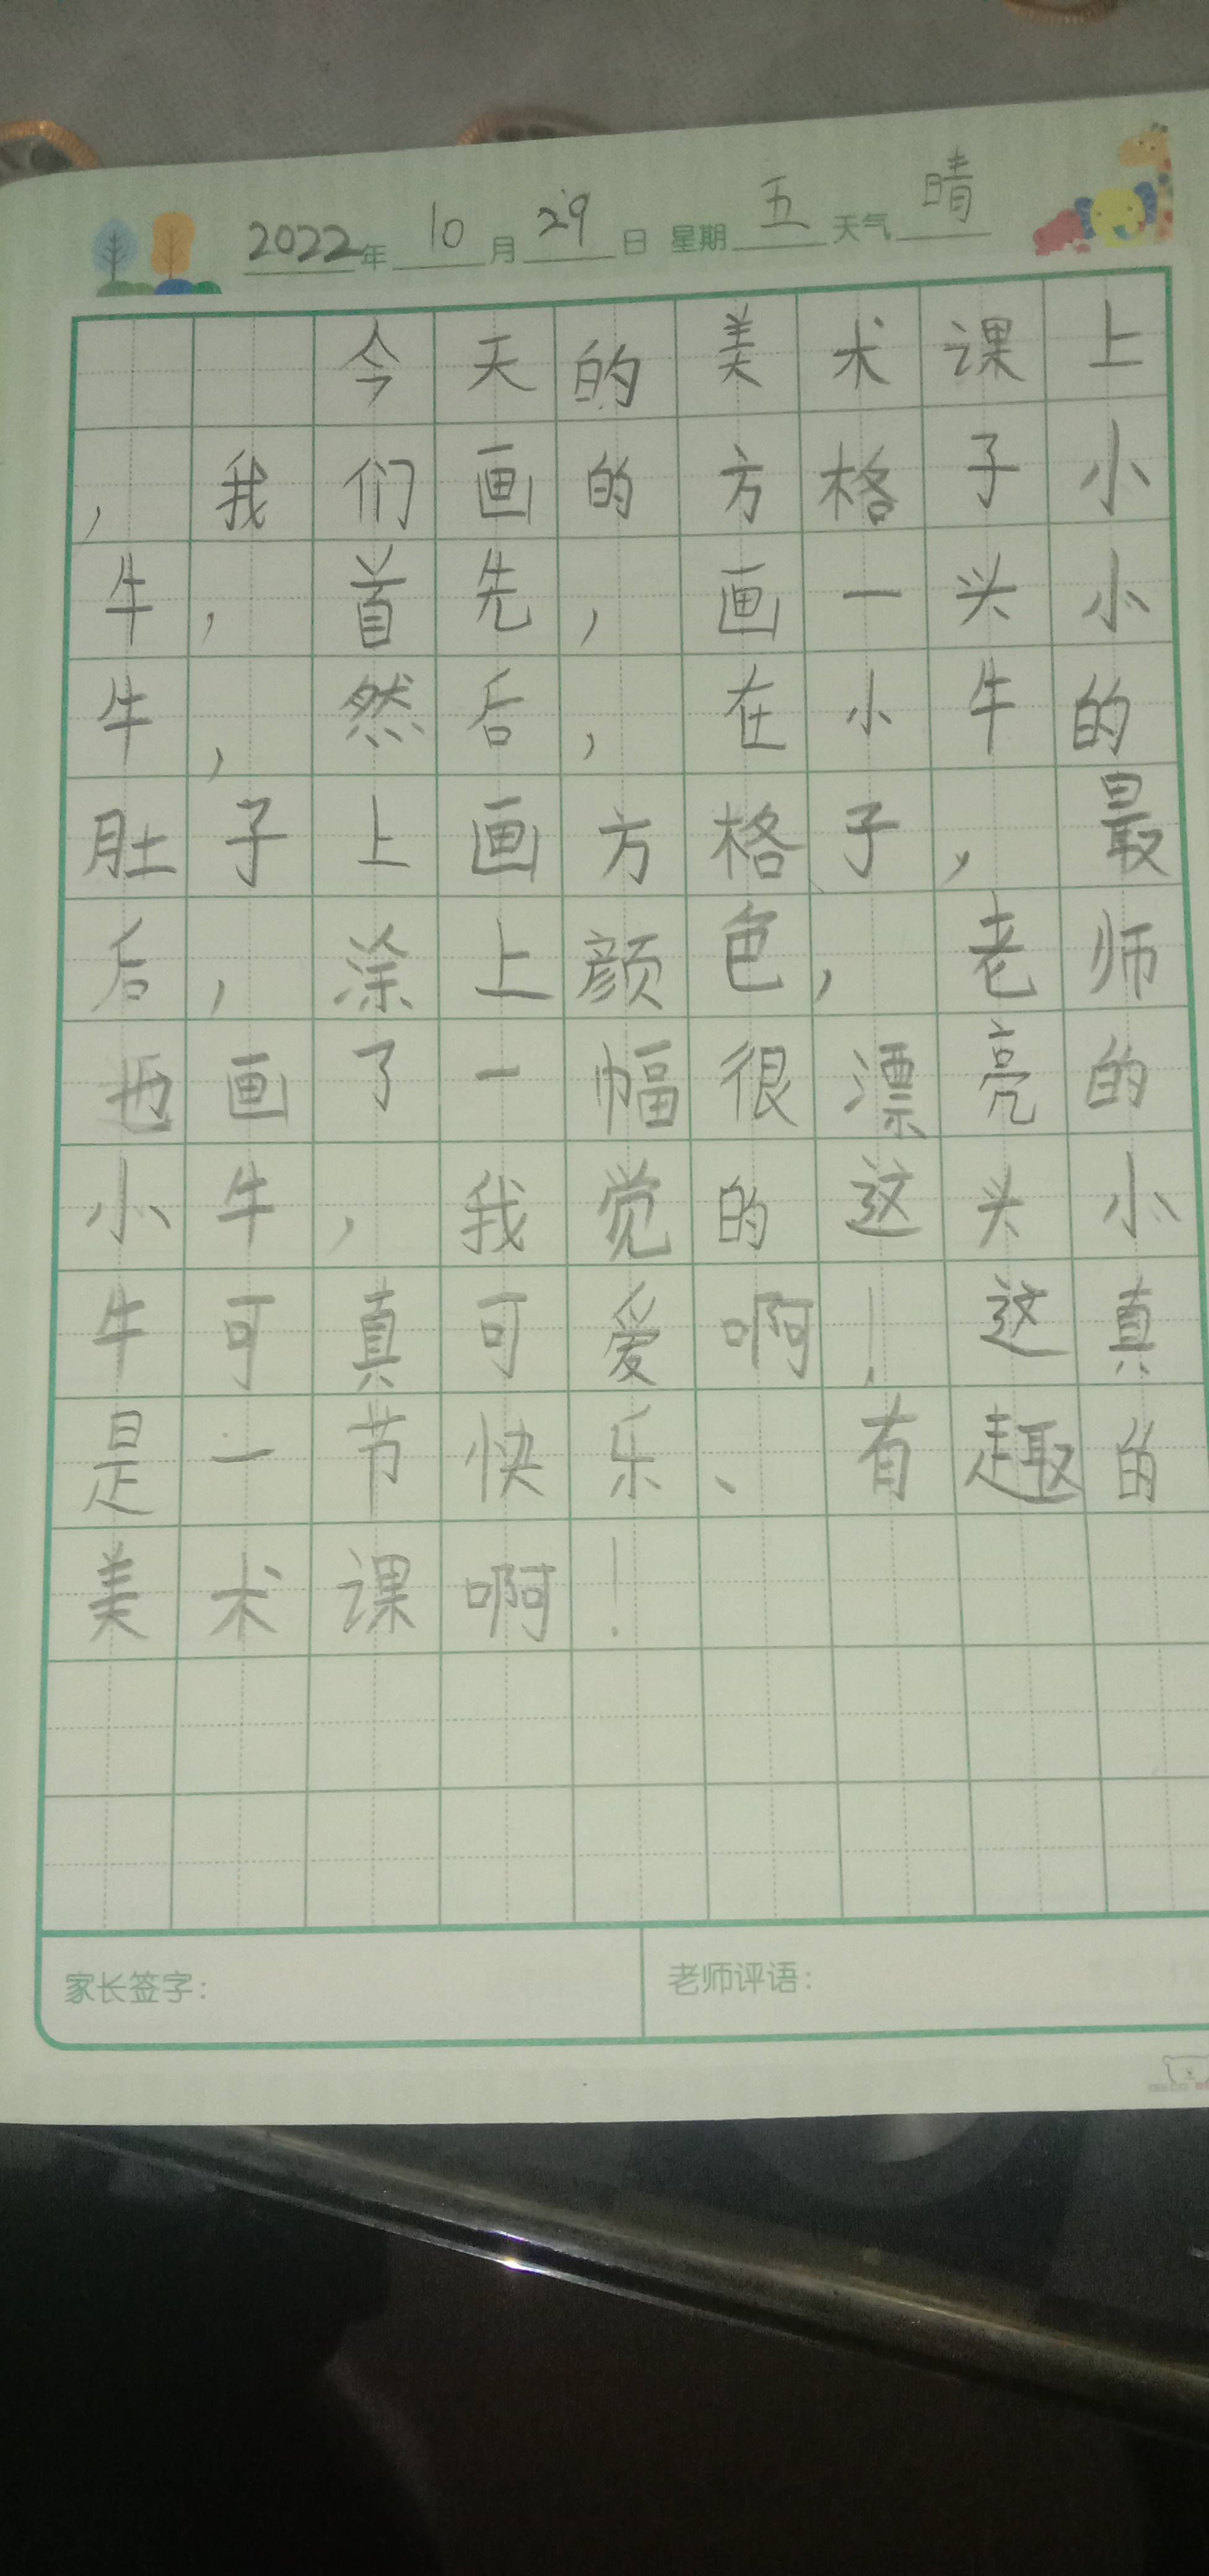 2022年10月29日 星期五天气晴
今天的美术课上
，我们画的方格子小
牛，首先，画一头小
牛，然后，在小牛的
肚子上画方格子，最
后，涂上颜色，老师
也画了一幅很漂亮的
小牛，我觉的这头小
牛可真可爱啊！这真
是一节快乐、有趣的
美术课啊！
家长签字： 老师评语：